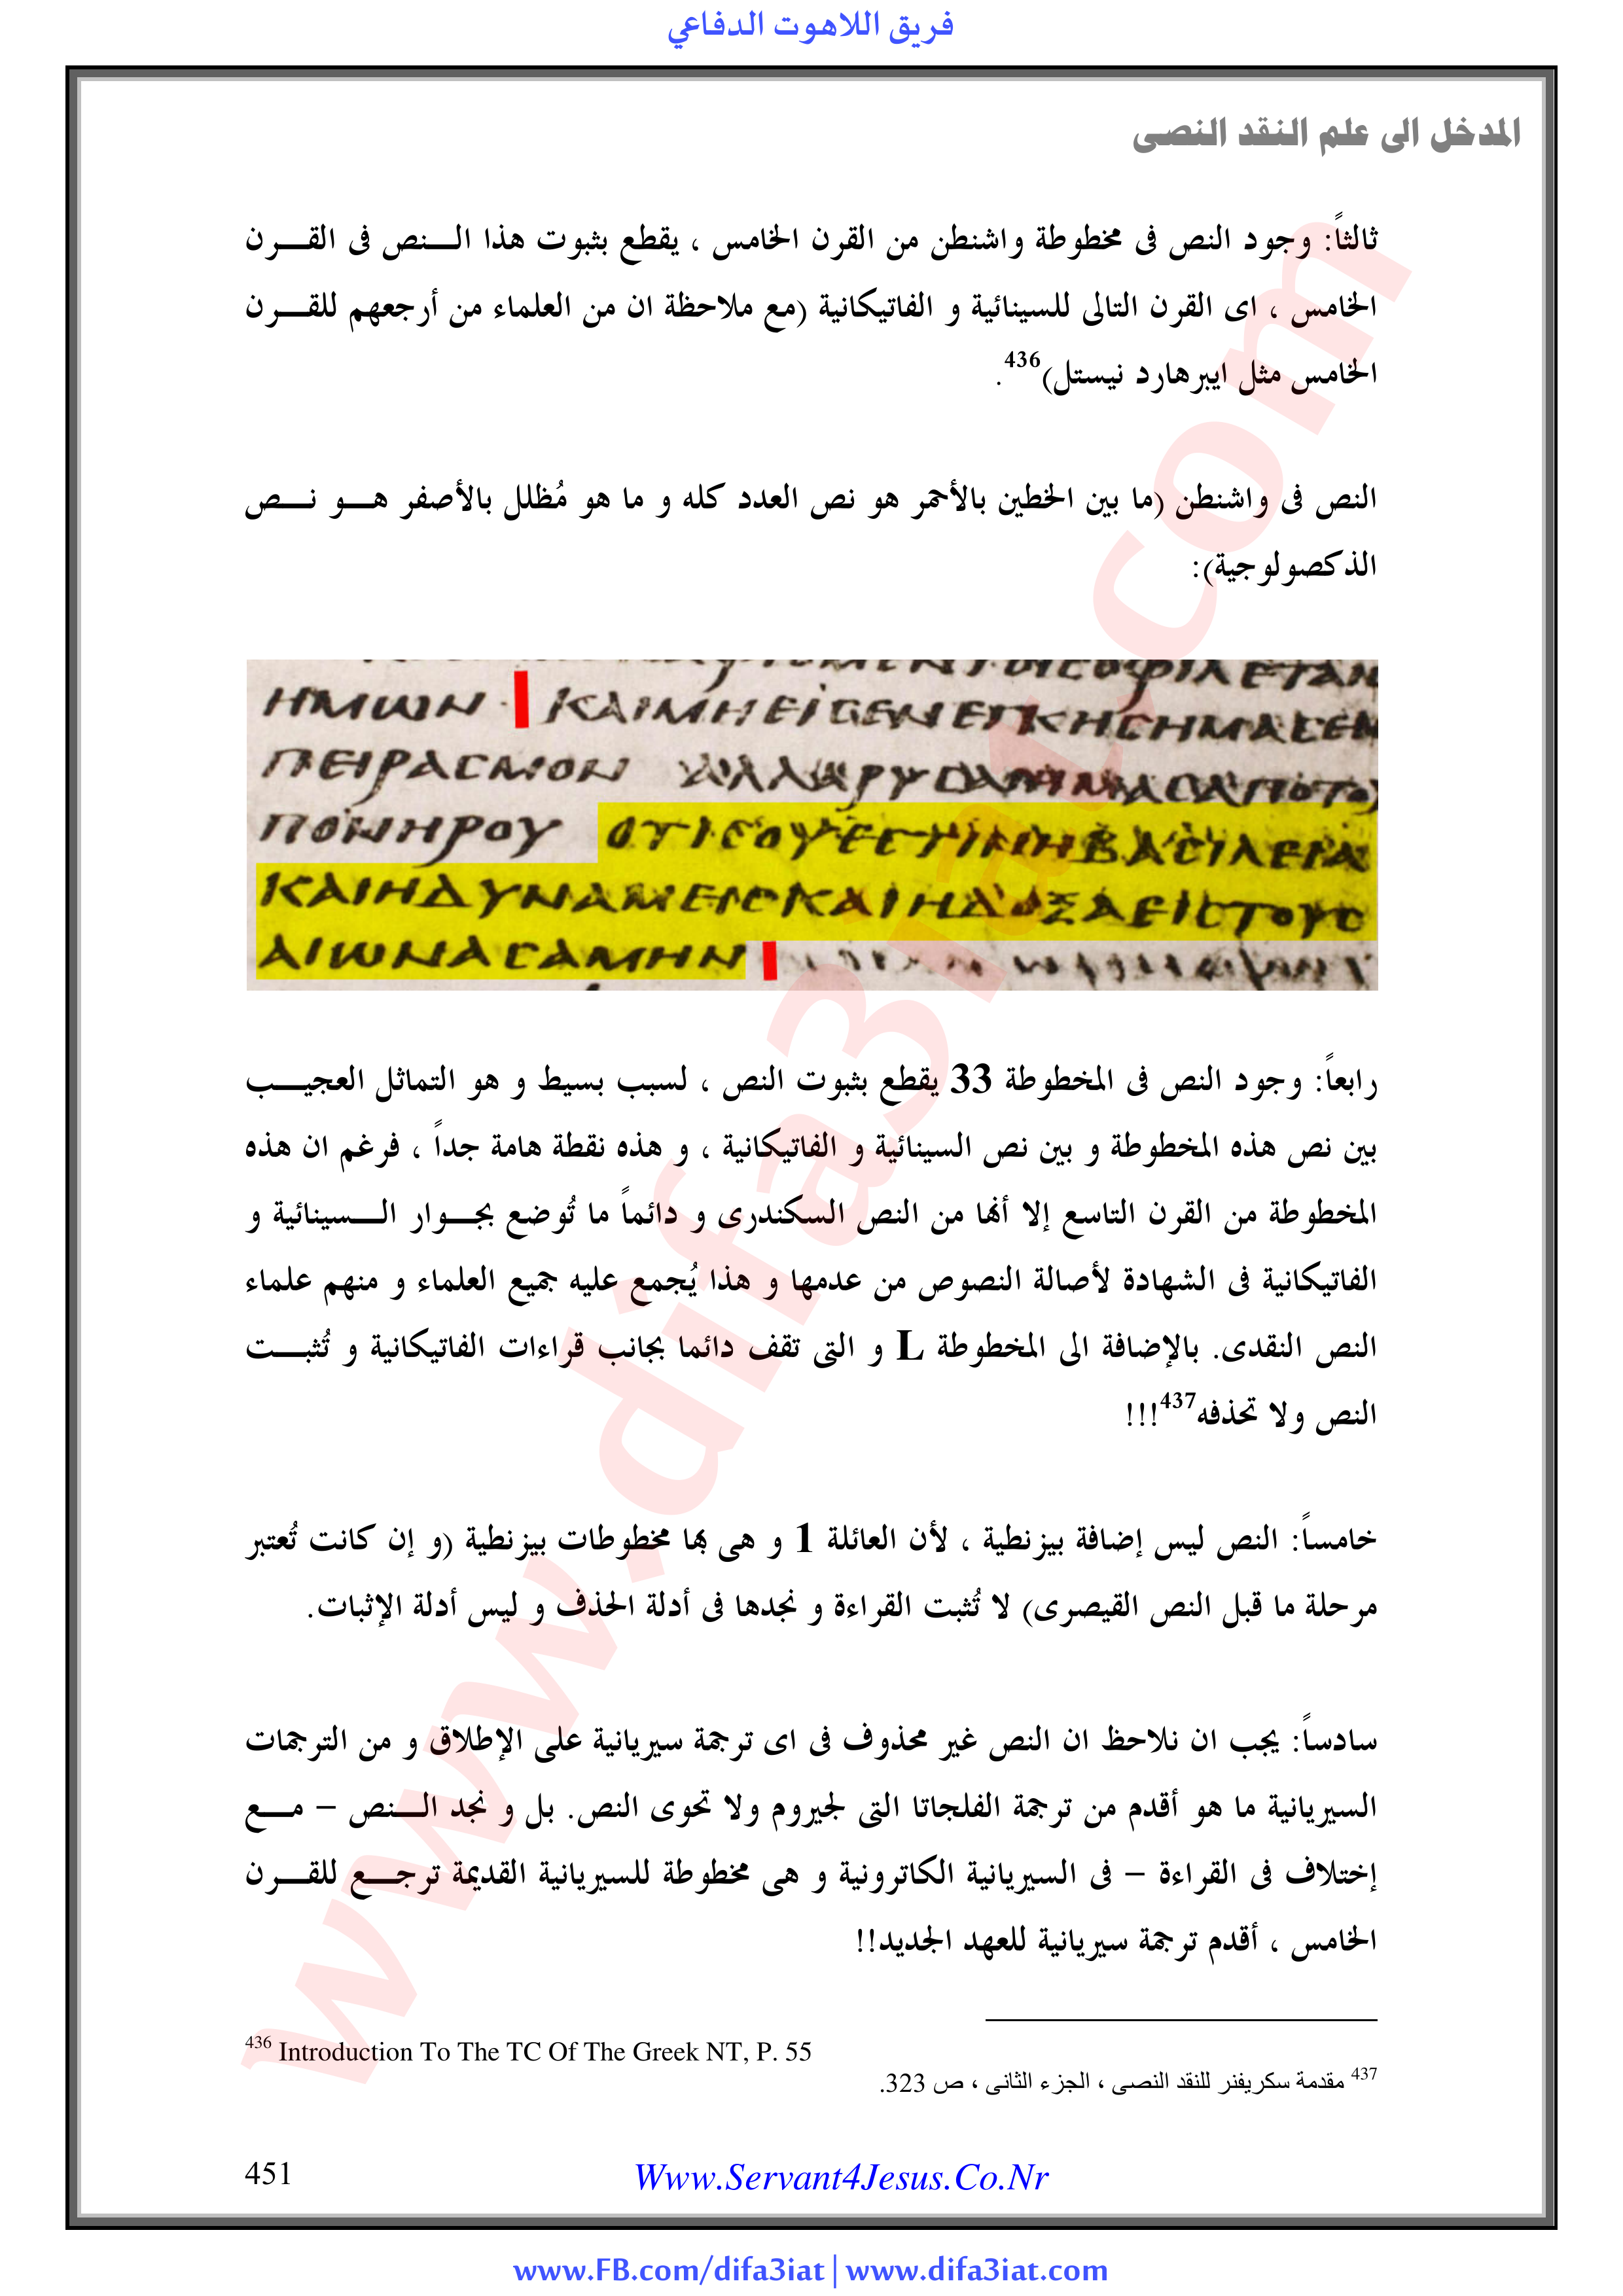 فريق اللاهوت الدفاعي
المدخل الى علم النقد النصى
ثالثاً: وجود النص فى مخطوطة واشنطن من القرن الخامس ، يقطع بثبوت هذا النص فى القرن
الخامس ، اى القرن التالى للسينائية و الفاتيكانية (مع ملاحظة ان من العلماء من أرجعهم للقرن
الخامس مثل ايبرهارد نيستل)436.
النص فى واشنطن (ما بين الخطين بالأحمر هو نص العدد كله و ما هو مُظلل بالأصفر هو نص
الذكصولوجية):
ΗΜΩΝ ΚΑΙΜΗΕΙϹΕΝΕΓΚΗϹΗΜΑϹΕΙ
ΠΕΙΡΑϹΜΟΝ ΑΛΛΑΡΥϹΑΙΗΜΑϹΑΠΟΤΟΥ
ΠΟΝΗΡΟΥ ΟΤΙϹΟΥΕϹΤΙΝΗΒΑϹΙΛΕΙΑ
ΚΑΙΗΔΥΝΑΜΕΙϹΚΑΙΗΔΟΞΑΕΙϹΤΟΥϹ
ΑΙΩΝΑϹΑΜΗΝ
رابعاً: وجود النص فى المخطوطة 33 يقطع بثبوت النص ، لسبب بسيط و هو التماثل العجيب
بين نص هذه المخطوطة و بين نص السينائية و الفاتيكانية ، و هذه نقطة هامة جداً ، فرغم ان هذه
المخطوطة من القرن التاسع إلا أنها من النص السكندرى و دائماً ما تُوضع بجوار السينائية و
الفاتيكانية فى الشهادة لأصالة النصوص من عدمها و هذا يُجمع عليه جميع العلماء و منهم علماء
النص النقدى. بالإضافة الى المخطوطة L و التى تقف دائما بجانب قراءات الفاتيكانية و تُثبت
النص ولا تحذفه437!!!
خامساً: النص ليس إضافة بيزنطية ، لأن العائلة 1 و هى بها مخطوطات بيزنطية (و إن كانت تُعتبر
مرحلة ما قبل النص القيصرى) لا تُثبت القراءة و نجدها فى أدلة الحذف و ليس أدلة الإثبات.
سادساً: يجب ان نلاحظ ان النص غير محذوف فى اى ترجمة سيريانية على الإطلاق و من الترجمات
السيريانية ما هو أقدم من ترجمة الفلجاتا التى لجيروم ولا تحوى النص. بل و نجد النص – مع
إختلاف فى القراءة – فى السيريانية الكاترونية و هى مخطوطة للسيريانية القديمة ترجع للقرن
الخامس ، أقدم ترجمة سيريانية للعهد الجديد!!
436 Introduction To The TC Of The Greek NT, P. 55
437 مقدمة سكريفنر للنقد النصى ، الجزء الثانى ، ص 323.
451
Www.Servant4Jesus.Co.Nr
www.FB.com/difa3iat | www.difa3iat.com
www.difa3iat.com